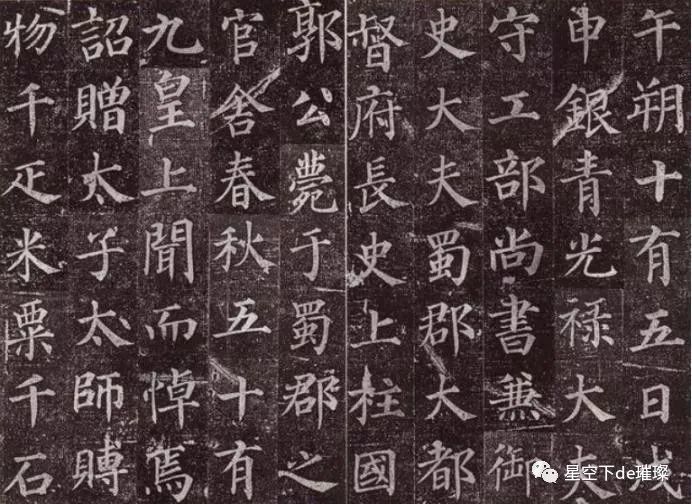 午朔十有五日戊
申銀青光禄大夫
守工部尚書兼御
史大夫蜀郡大都
督府長史上柱國
郭公薨于蜀郡之
官舍春秋五十有
九皇上聞而悼焉
詔贈太子太師賻
物千疋米粟千石
星空下de璀璨